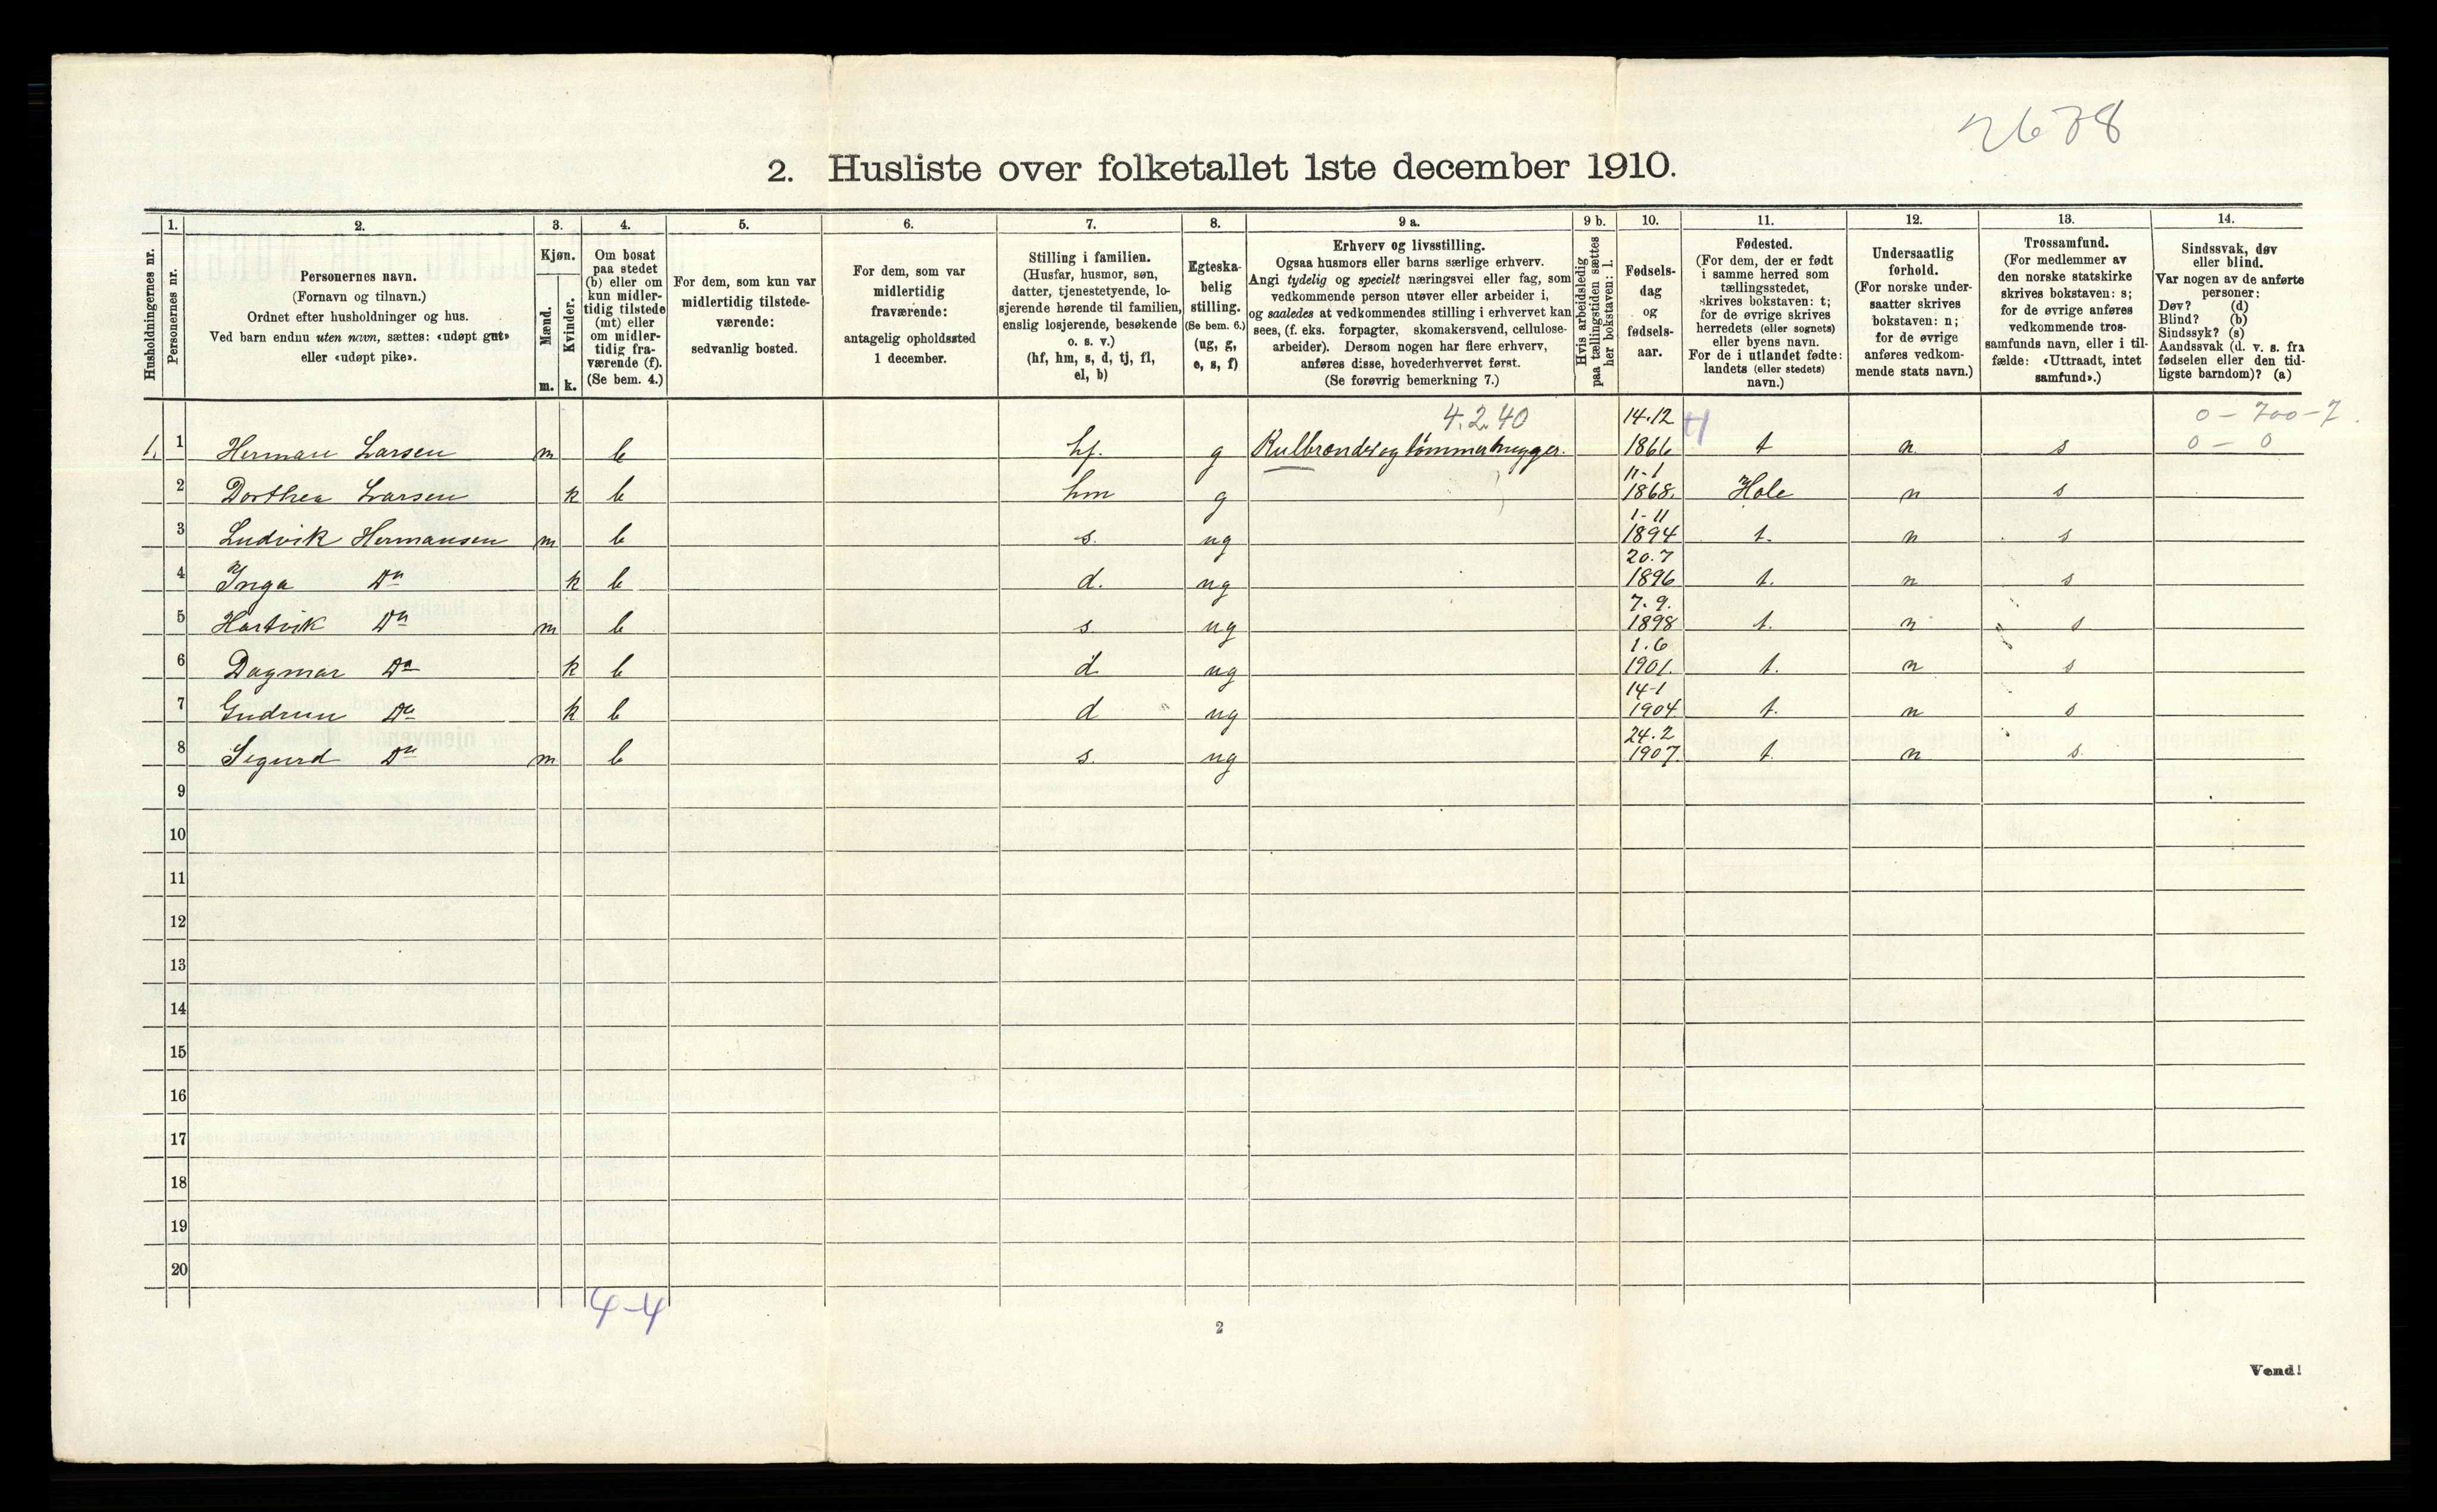 2678
2. Husliste over folketallet 1ste december 1910.
Husholdningernes nr.
1.
Personernes nr.
2.
Personernes navn.
(Fornavn og tilnavn.)
Ordnet efter husholdninger og hus.
Ved barn endnu uten navn, sættes: «udøpt gut»
eller «udøpt pike».
3.
Kjøn.
Mænd.
Kvinder.
m. k.
4.
Om bosat
paa stedet
(b) eller om
kun midler-
tidig tilstede
(mt) eller
om midler-
tidig fra-
værende (f).
(Se bem. 4.)
5.
For dem, som kun var
midlertidig tilstede-
værende:
sedvanlig bosted.
6.
For dem, som var
midlertidig
fraværende:
antagelig opholdssted
1 december.
7.
Stilling i familien.
(Husfar, husmor, søn,
datter, tjenestetyende, lo-
sjerende hørende til familien,
enslig losjerende, besøkende
o. s. v.)
(hf, hm, s, d, tj, fl,
el, b)
8.
Egteska-
belig
stilling.
(Se bem. 6.)
(ug, g,
e, s, f)
9 a.
Erhverv og livsstilling.
Ogsaa husmors eller barns særlige erhverv.
Angi tydelig og specielt næringsvei eller fag, som
vedkommende person utøver eller arbeider i,
og saaledes at vedkommendes stilling i erhvervet kan
sees, (f. eks. forpagter, skomakersvend, cellulose-
arbeider). Dersom nogen har flere erhverv,
anføres disse, hovederhvervet først.
(Se forøvrig bemerkning 7.)
9 b.
Hvis arbeidsledig
paa tællingstiden sættes
her bokstaven: l.
10.
Fødsels-
dag
og
fødsels-
aar.
11.
Fødested.
(For dem, der er født
i samme herred som
tællingsstedet,
skrives bokstaven: t;
for de øvrige skrives
herredets (eller sognets)
eller byens navn.
For de i utlandet fødte:
landets (eller stedets)
navn.)
12.
Undersaatlig
forhold.
(For norske under-
saatter skrives
bokstaven: n;
for de øvrige
anføres vedkom-
mende stats navn.)
13.
Trossamfund.
(For medlemmer av
den norske statskirke
skrives bokstaven: s;
for de øvrige anføres
vedkommende tros-
samfunds navn, eller i til-
fælde: «Uttraadt, intet
samfund».)
14.
Sindssvak, døv
eller blind.
Var nogen av de anførte
personer:
Døv? (d)
Blind? (b)
Sindssyk? (s)
Aandssvak (d. v. s. fra
fødselen eller den tid-
ligste barndom)? (a)
4.2.40 14.12 0 - 700 - 7
1. 1 Herman Larsen m b hf. g Kulbrænder og tømmerhugger. 1866 t n. s 0 - 0
11-1
2 Dorthea Larsen k b hm g 1868. Hole n s
1-11
3 Ludvik Hermansen m b s. ug 1894 t. n s
20.7
4 Inga Do k b d. ug 1896 t. n s
7.9.
5 Hartvik Do m b s. ug 1898 t. n s
1.6
6 Dagmar Do k b d ug 1901. t. n s
14-1
7 Gudrun Do k b d ug 1904. t. n s
24.2
8 Sigurd Do m b s. ug 1907. t. n s.
9
10
11
12
13
14
15
16
17
18
19
20
4-4
2
Vend!